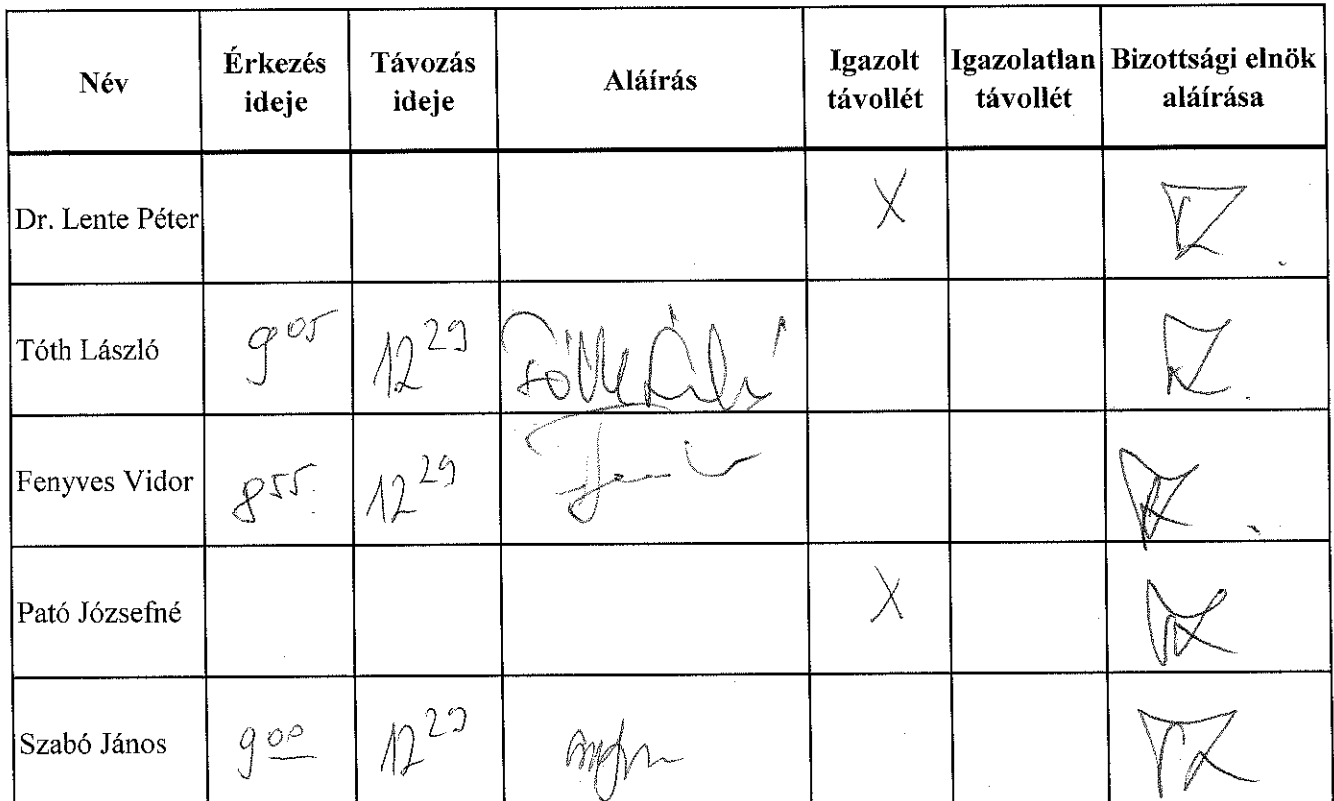 Név Érkezés ideje Távozás ideje Aláírás Igazolt távollét Igazolatlan távollét Bizottsági elnök aláírása
Dr. Lente Péter X
Tóth László 9 05 12 29
Fenyves Vidor 8 55 12 29
Pató Józsefné X
Szabó János 9 00 12 29